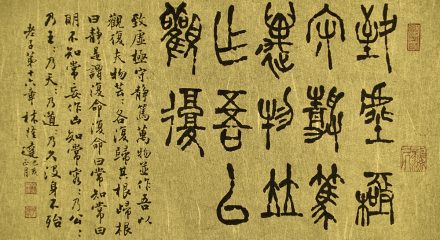 致虛極
守靜篤
萬物並
作吾以
觀復
致虛極守靜篤萬物並作吾以
觀復夫物芸〻各復歸其根歸根
曰靜是謂復命復命曰常知常曰
明不知常妄作凶知常容〻乃公〻
乃王〻乃天〻乃道〻乃久沒身不殆
老子第十六章 林